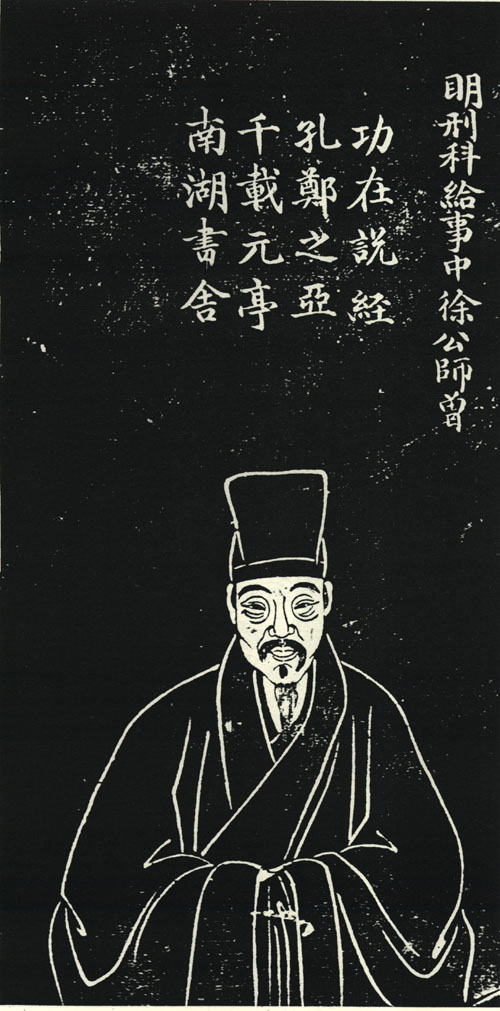 明刑科給事中徐公師曾
功在説經
孔鄭之亞
千載元亭
南湖書舍